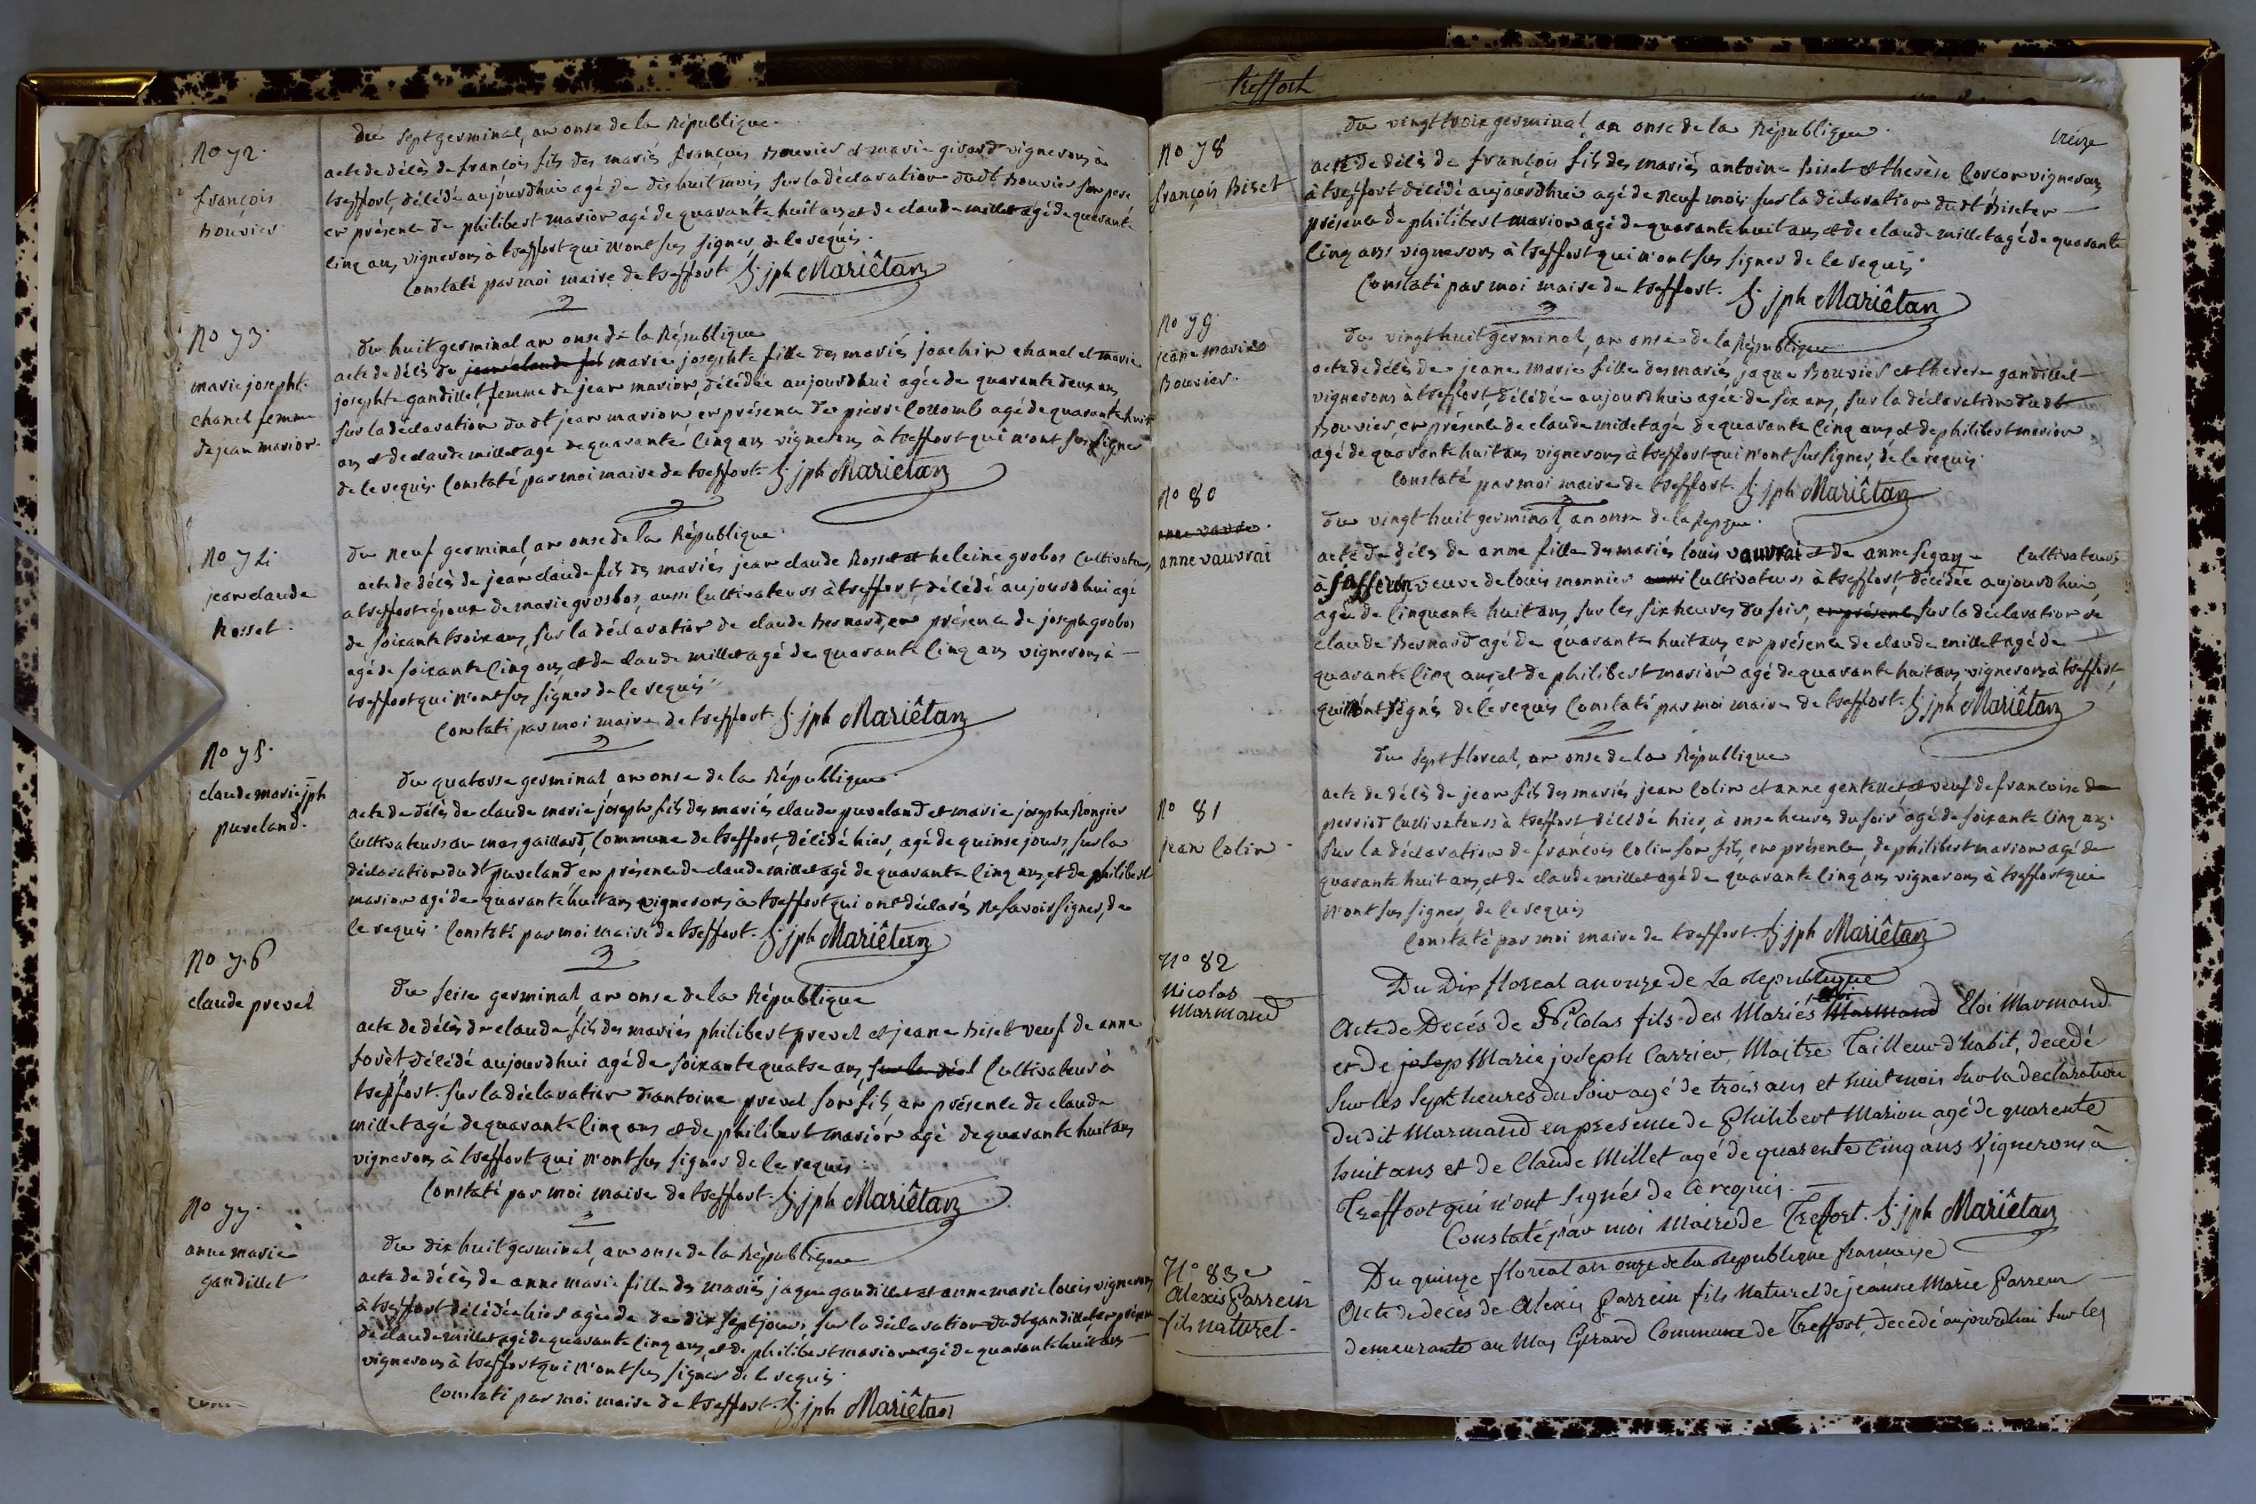 No 72.
françois
Bouvier
Du sept germinal, an onse de la République.
acte de délès de françois fils des mariés françois Bouvier et marie girard vignerons à
treffort, délédé aujourdhui agé de dis huit mois sur la déclaration dudt Bouvier son pere
en présenle de philibert marion agé de quarante huit ans et de claude millet agé de quarante
linq ans vignerons à treffort qui n'ont sus signer, de le requis.
Constaté par moi maire de treffort. Jph Mariêtan
No 73.
marie josephte
chanel femme
de jean marion
Du huit germinal an onse de la République
acte de délès de jean claude fils marie josephte fille des mariés joachin chanel et marie
josephte gandillet, femme de jean marion, délédée aujourdhui agée de quarante deux ans
sur la déclaration dudt jean marion, en présenle de pierre Collomb agé de quarante huit
ans et de claude millet agé de quarante linq ans vignerons à treffort qui n'ont sus signer
de le requis. Constaté par moi maire de treffort. Jph Mariêtan
No 74.
jean claude
Rosset.
Du neuf germinal, an onse de la République.
acte de délès de jean claude fils des mariés jean claude Rosset et heleine grobos Cultivateurs
a treffort époux de marie grosbos, aussi Cultivateurs à treffort, délédé aujourdhui agé
de soixante troix ans, sur la déclaration de claude Bernard, en présenle de joseph grobos
agé de soixante linq ans, et de claude millet agé de quarante linq ans vignerons à
treffort qui n'ont sus signer de le requis
Constaté par moi maire de treffort. Jph Mariêtan
No 75.
claude marie jph
puveland.
Du quatorse germinal an onse de la République.
acte de délès de claude marie joseph fils des mariés claude puveland et marie josephe Rongier
Cultivateurs au mas gaillard, Commune de treffort, délédé hier, agé de quinse jours, sur la
déclaration dudt puveland en présenle de claude millet agé de quarante linq ans, et de philibert
marion agé de quarante huit ans vignerons à treffort qui ont déclarés ne savoir signer, de
le requis. Constaté par moi maire de treffort. Jph Mariêtan
No 76
claude prevel
Du seise germinal, an onse de la République
acte de délès de claude fils des mariés philibert prevel et jeane Biset veuf de anne
forèt délédé aujourdhui agé de soixante quatre ans, sur la décl Cultivateur à
treffort. sur la déclaration d'antoine prevel son fils, en présenle de claude
millet agé de quarante linq ans et de philibert marion agé de quarante huit ans
vignerons à treffort qui n'ont sus signer de le requis
Constaté par moi maire de treffort. Jph Mariêtan
No 77.
anne marie
gandillet
Du dix huit germinal, an onse de la République
acte de délès de anne marie fille des mariés jaque gandillet et anne marie louis vignerons
à treffort délédée hier agée de de dix sept jours, sur la déclaration dudt gandillet en présenle
de claude millet agé de quarante linq ans, et de philibert marion agé de quarante huit ans
vignerons à treffort qui n'ont sus signer de le requis.
Constaté par moi maire de treffort. Jph Mariêtan
treffort
treize
No 78
françois Biset
Du vingt troix germinal an onse de la République.
acte de délès de françois fils des mariés antoine Biset et therèse Corcon vignerons
à treffort délédé aujourdhui agé de neuf mois sur la déclaration dudt Biset en
présenle de philibert marion agé de quarante huit ans et de claude millet agé de quarante
linq ans vignerons à treffort qui n'ont sus signer de le requis.
Constaté par moi maire de treffort. Jph Mariêtan
No 79.
jeane marie
Bouvier.
Du vingt huit germinal, an onse de la République
acte de délès de jeane marie fille des mariés jaque Bouvier et therese gandillet
vignerons à treffort, délédée aujourdhui agée de six ans, sur la déclaration dudt
Bouvier, en présenle de claude millet agé de quarante linq ans et de philibert marion
agé de quarante huit ans vignerons à treffort qui n'ont sus signer, de le requis
Constaté par moi maire de treffort. Jph Mariêtan
No 80
anne vavra.
anne vauvrai
Du vingt huit germinal, an onse de la Repque.
acte de délès de anne fille des mariés louis vauvrai et de anne Segay Cultivateurs
à veuve de louis monnier aussi Cultivateurs à treffort, délédée aujourdhui,
agée de linquante huit ans, sur les six heures du soir, en présenl sur la déclaration de
claude Bernard agé de quarante huit ans en présenle de claude millet agé de
quarante linq ans, et de philibert marion agé de quarante huit ans, vignerons à treffort,
qui n'ont signés de le requis Constaté par moi maire de treffort. Jph Mariêtan
No 81
jean Colin
Du sept floreal, an onse de la République
acte de délès de jean fils des mariés jean Colin et anne gentellet et veuf de francoise de
perriod Cultivateurs à treffort délédé hier, à onse heures du soir agé de soixante linq ans.
Sur la déclaration de francois Colin son fils, en présenle, de philibert marion agé de
quarante huit ans, et de claude millet agé de quarante linq ans vignerons à treffort qui
n'ont sus signer, de le requis
Constaté par moi maire de treffort. Jph Mariêtan
No 82
Nicolas
Marmand
Du Dix floreal an onze de La republique
Acte de Decés de Nicolas fils des Mariés Marmand Eloi Marmand
et de josep Marie joseph Carrier, Maitre Tailleur d'habit, decedé
Sur les Sept heures du soir agé de trois ans et huit mois sur la declaration
dudit Marmand en presence de Philibert Marion agé de quarente
huit ans et de Claude Millet agé de quarente cinq ans Vignerons à
Treffort qui n'ont signés de ce requis.
Constaté par moi Maire de Treffort. Jph Mariêtan
No 83e
Alexis Parrein
fils naturel
Du quinze floreal an onze de la republique francaise
Acte de decès de Alexis Parrein fils naturel de jeanne Marie Parrein
demeurante au Mas Girard Commune de Treffort, decedé aujourdhui sur les